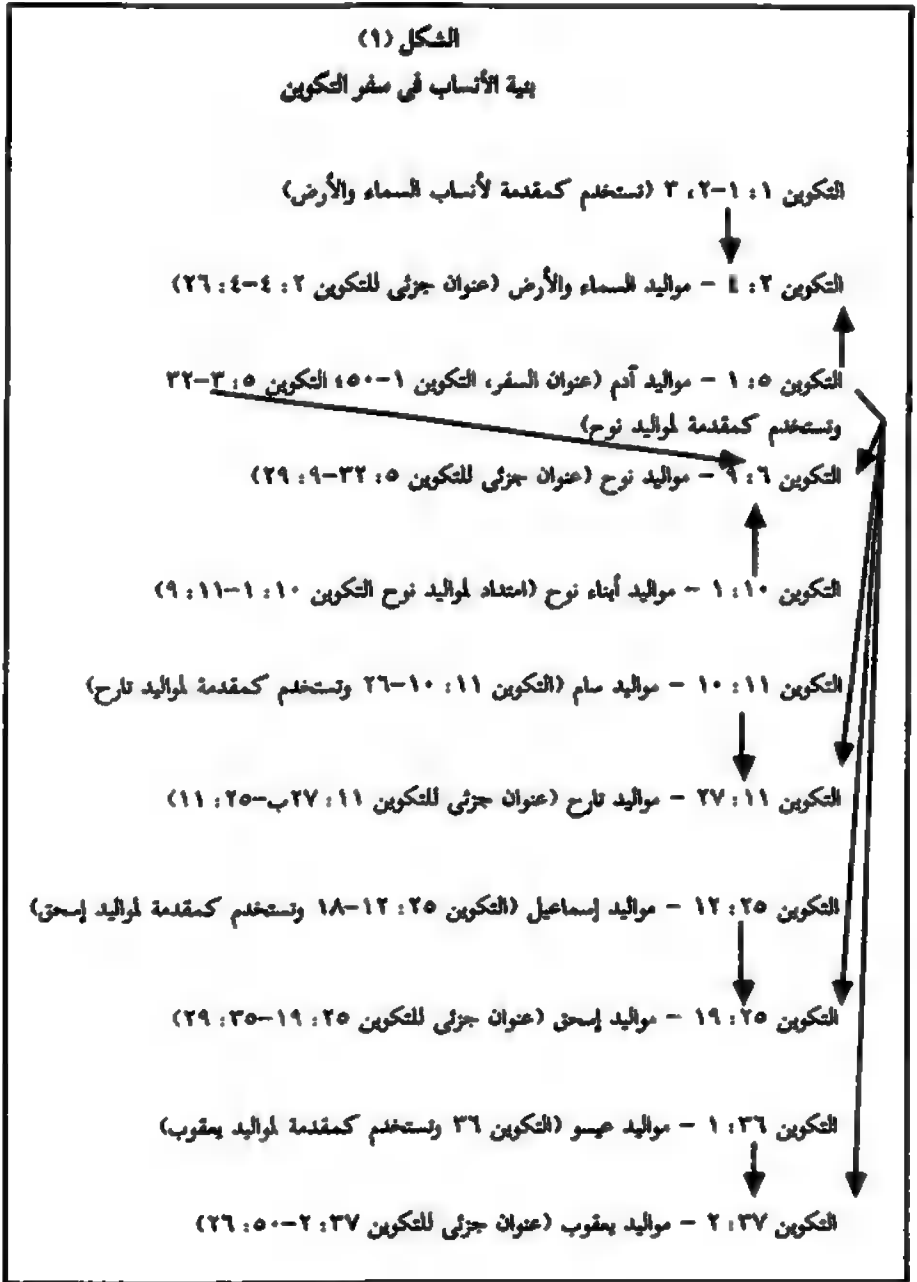 الشكل (١)
بنية الأنساب في سفر التكوين
التكوين ١: ١-٢، ٣ (تستخدم كمقدمة لأنساب السماء والأرض)
التكوين ٢: ٤ - مواليد السماء والأرض (عنوان جزئى للتكوين ٢: ٤-٤: ٢٦)
التكوين ٥: ١ - مواليد آدم (عنوان السفر، التكوين ١-٥٠؛ التكوين ٥: ٣-٣٢
وتستخدم كمقدمة لمواليد نوح)
التكوين ٦: ٩ - مواليد نوح (عنوان جزئى للتكوين ٥: ٣٢-٩: ٢٩)
التكوين ١٠: ١ - مواليد أبناء نوح (امتداد لمواليد نوح التكوين ١٠: ١-١١: ٩)
التكوين ١١: ١٠ - مواليد سام (التكوين ١١: ١٠-٢٦ وتستخدم كمقدمة لمواليد تارح)
التكوين ١١: ٢٧ - مواليد تارح (عنوان جزئى للتكوين ١١: ٢٧ب-٢٥: ١١)
التكوين ٢٥: ١٢ - مواليد إسماعيل (التكوين ٢٥: ١٢-١٨ وتستخدم كمقدمة لمواليد إسحق)
التكوين ٢٥: ١٩ - مواليد إسحق (عنوان جزئى للتكوين ٢٥: ١٩-٣٥: ٢٩)
التكوين ٣٦: ١ - مواليد عيسو (التكوين ٣٦ وتستخدم كمقدمة لمواليد يعقوب)
التكوين ٣٧: ٢ - مواليد يعقوب (عنوان جزئى للتكوين ٣٧: ٢-٥٠: ٢٦)